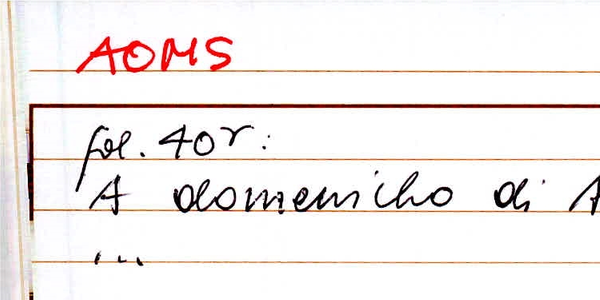 AOMS
fol. 40r:
A domenicho di
...